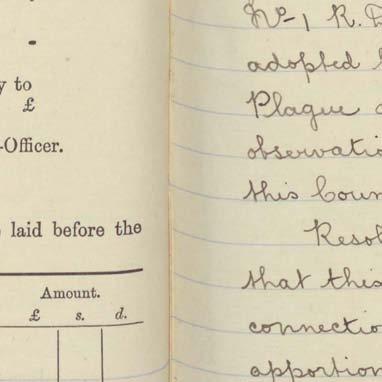 y to
£
-Officer.
laid before the
Amount.
£ s. d.
No-1 R.
adopted
Plague
observatio
this Coun
Resol
that this
connectio
apportion